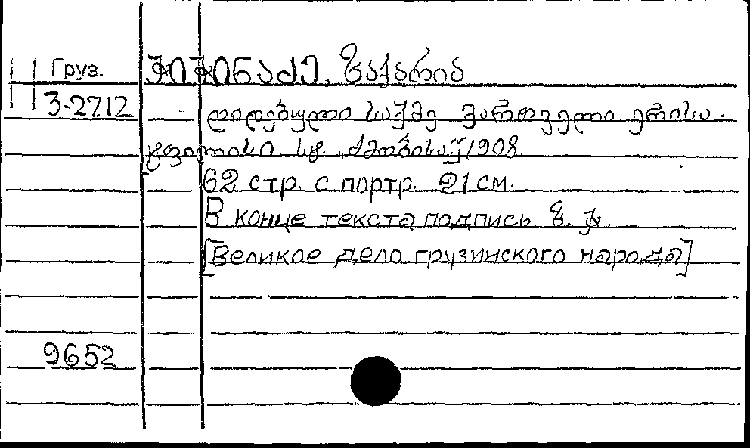 Груз. ჭიჭინაძე, ზაქარია
3-2712 დიდებული საქმე ქართველი ერისა.
ტფილისი სტ. ძმობისა, 1908
62 стр. с портр. 21 см.
В конце текста подпись ზ. ჭ.
[Великое дело грузинского народа]
9652